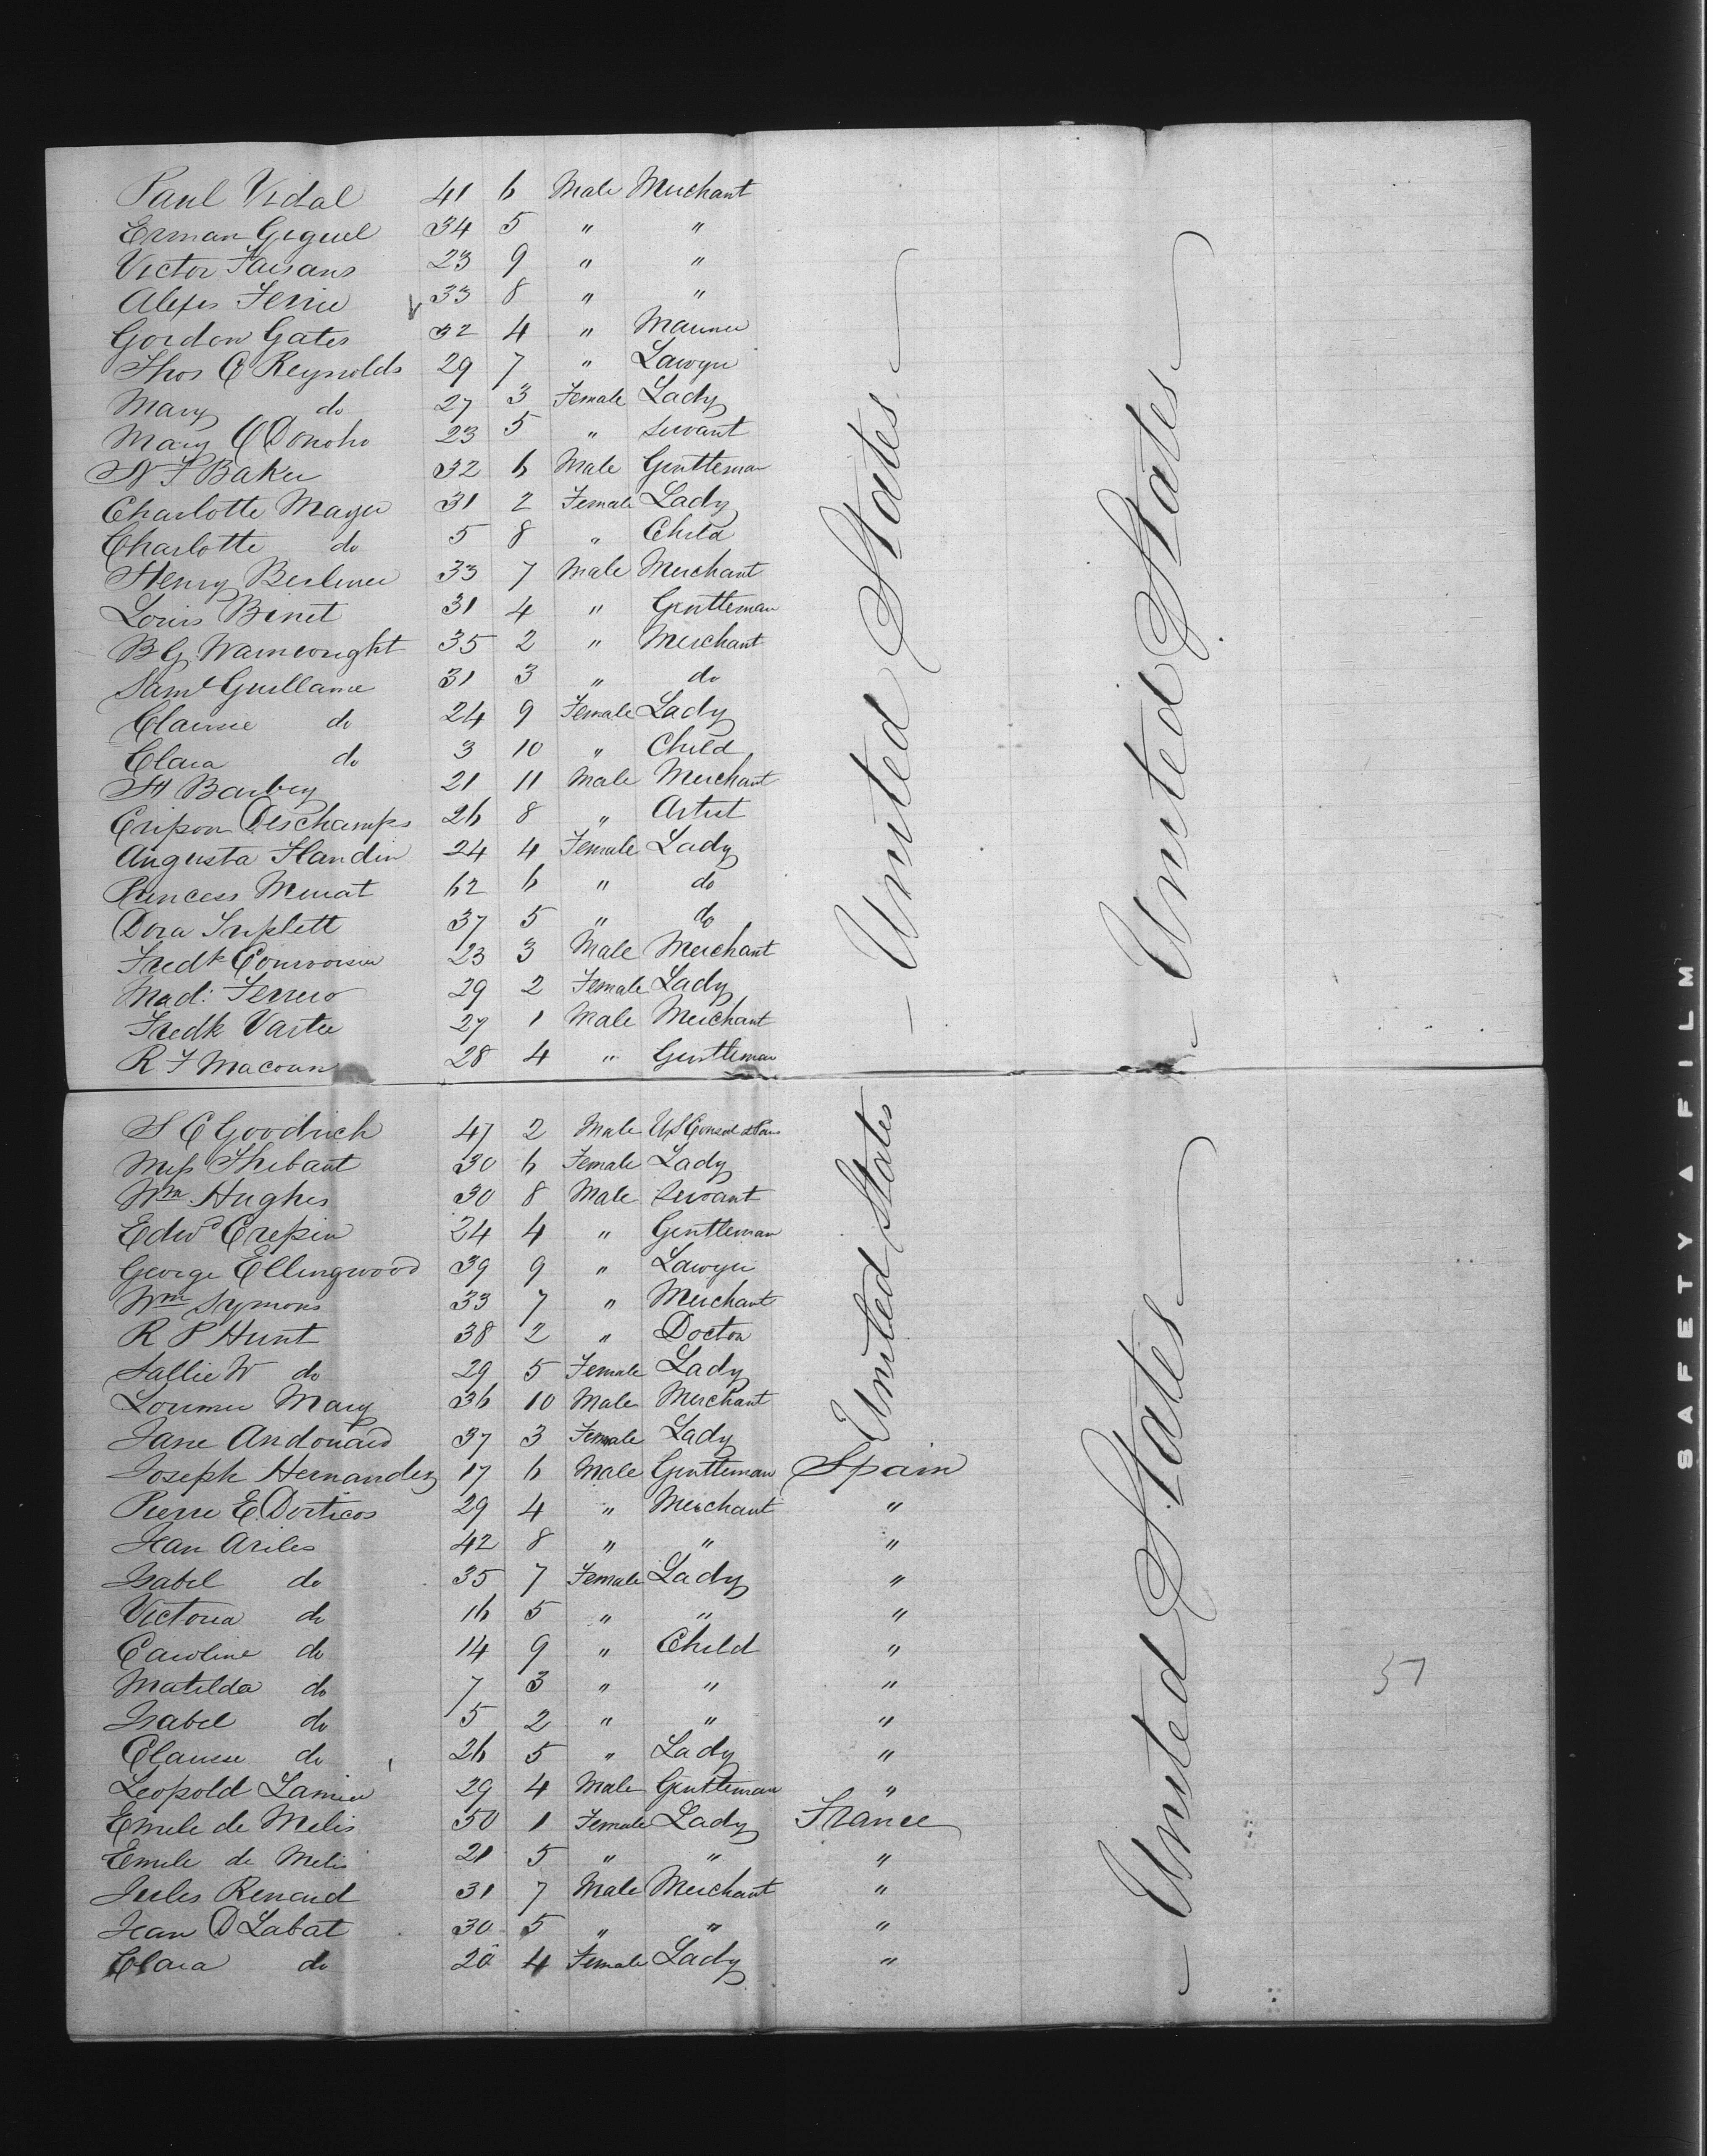 Paul Vidal 41 6 Male Merchant
Erman Giguel 34 5 " "
Victor Faisans 23 9 " "
Alexis Ferrie 33 8 " "
Gordon Gates 32 4 " Mariner
Thos C Reynolds 29 7 " Lawyer
Mary do 27 3 Female Lady
Mary O Donoho 23 5 " Servant
N F Baker 32 6 Male Gentleman
Charlotte Mayer 31 2 Female Lady
Charlotte do 5 8 " Child
Henry Berliner 33 7 Male Merchant
Louis Binet 31 4 " Gentleman
B G Wainwright 35 2 " Merchant
Saml Guillame 31 3 " do
Clairsie do 24 9 Female Lady
Clara do 3 10 " Child
H Barbey 21 11 Male Merchant
Deschamps 26 8 " Artist
Augusta Flandin 24 4 Female Lady
Princess Murat 62 6 " do
Dora Triplett 37 5 " do
Fredk Courvoisier 23 3 Male Merchant
Mad: Ferrero 29 2 Female Lady
Fredk Vartee 27 1 Male Merchant
R F Macoun 28 4 " Gentleman
United States
United States
S C Goodrich 47 2 Male US Consul at Paris
Miss Thibaut 30 6 Female Lady
Wm Hughes 30 8 Male Servant
Edwd Crepin 24 4 " Gentleman
George Ellingwood 39 9 " Lawyer
Wm Symons 33 7 " Merchant
R P Hunt 38 2 " Doctor
Sallie W do 29 5 Female Lady
Lorimer Mary 36 10 Male Merchant
Jane Andouard 37 3 Female Lady
United States
Joseph Hernandez 17 6 Male Gentleman Spain
Pierre E. Dorticos 29 4 " Merchant "
Jean Ariles 42 8 " " "
Isabel do 35 7 Female Lady "
Victoria do 16 5 " " "
Caroline do 14 9 " Child "
Matilda do 7 3 " " "
Isabel do 5 2 " " "
Clause do 26 5 " Lady "
Leopold Lamier 29 4 Male Gentleman "
Emile de Melis 50 1 Female Lady France
Emile de Melis 21 5 " " "
Jules Renaud 31 7 Male Merchant "
Jean D Labat 30 5 " " "
Clara do 20 4 Female Lady "
United States
57
SAFETY ▲ FILM